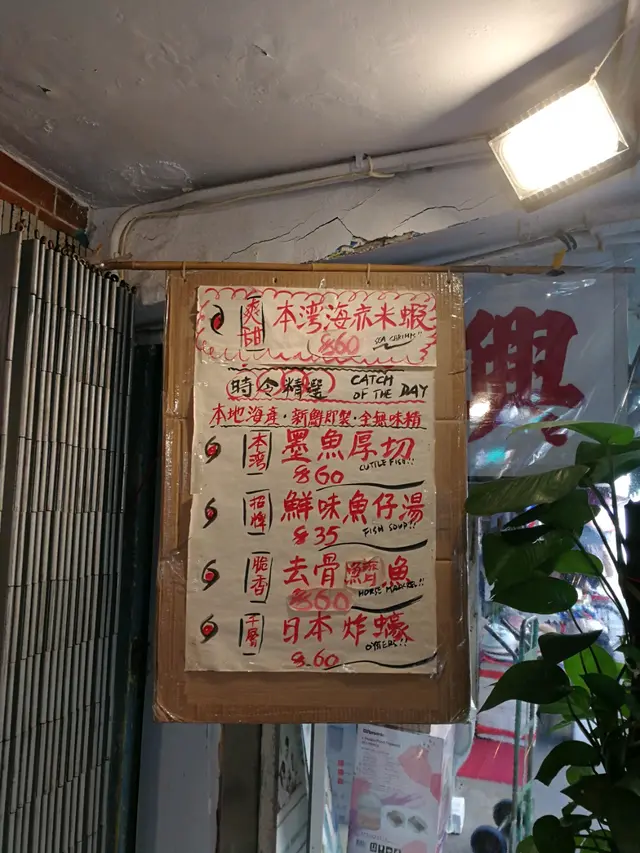 爽甜 本湾海赤米蝦
$60 SEA SHRIMP!!
時令精選 CATCH OF THE DAY
本地海產·新鮮即製·全無味精
本湾 墨魚厚切
$60 CUTTLE FISH!!
招牌 鮮味魚仔湯
$35 FISH SOUP!!
脆香 去骨鱭魚
$60 HORSE MACKREL!!
千層 日本炸蠔
$60 OYSTERS!!
興